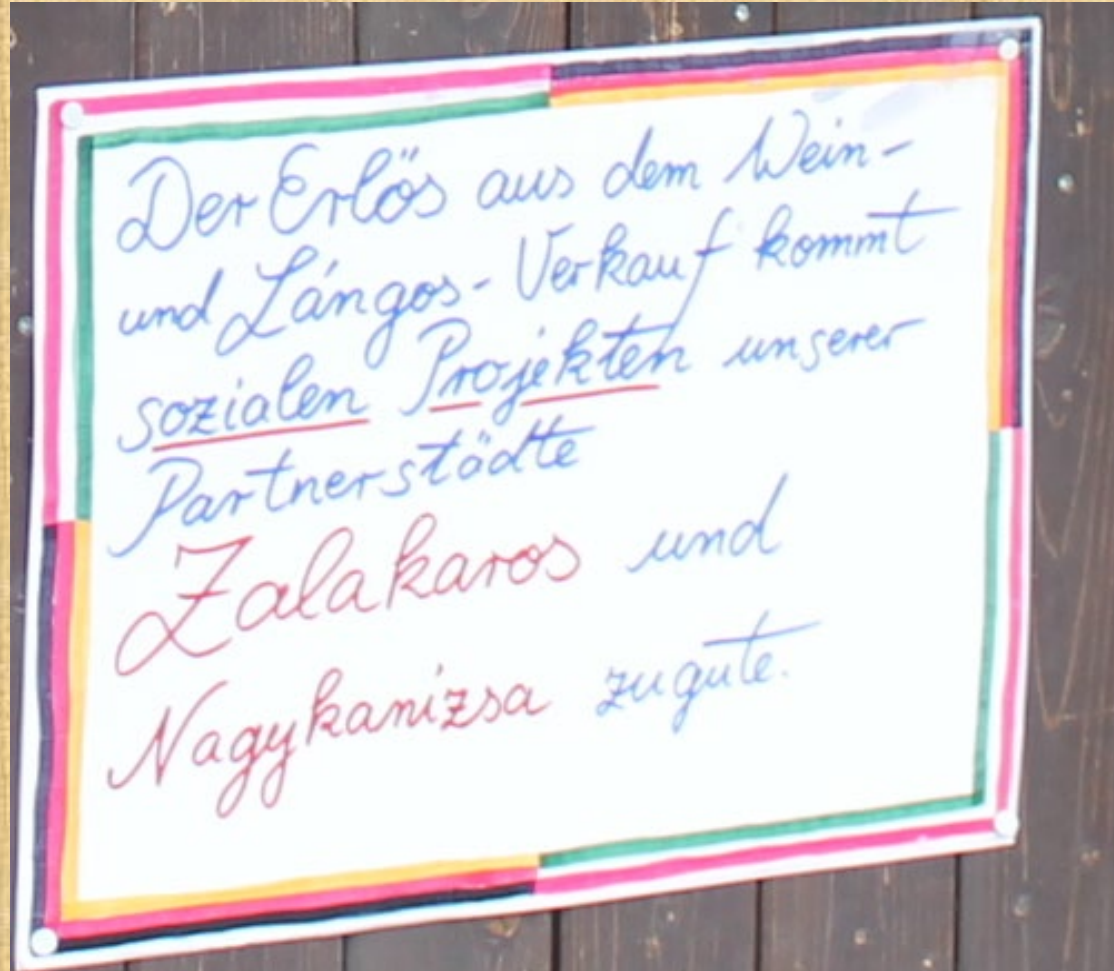 Der Erlös aus dem Wein-
und Lángos-Verkauf kommt
sozialen Projekten unserer
Partnerstädte
Zalakaros und
Nagykanizsa zugute.